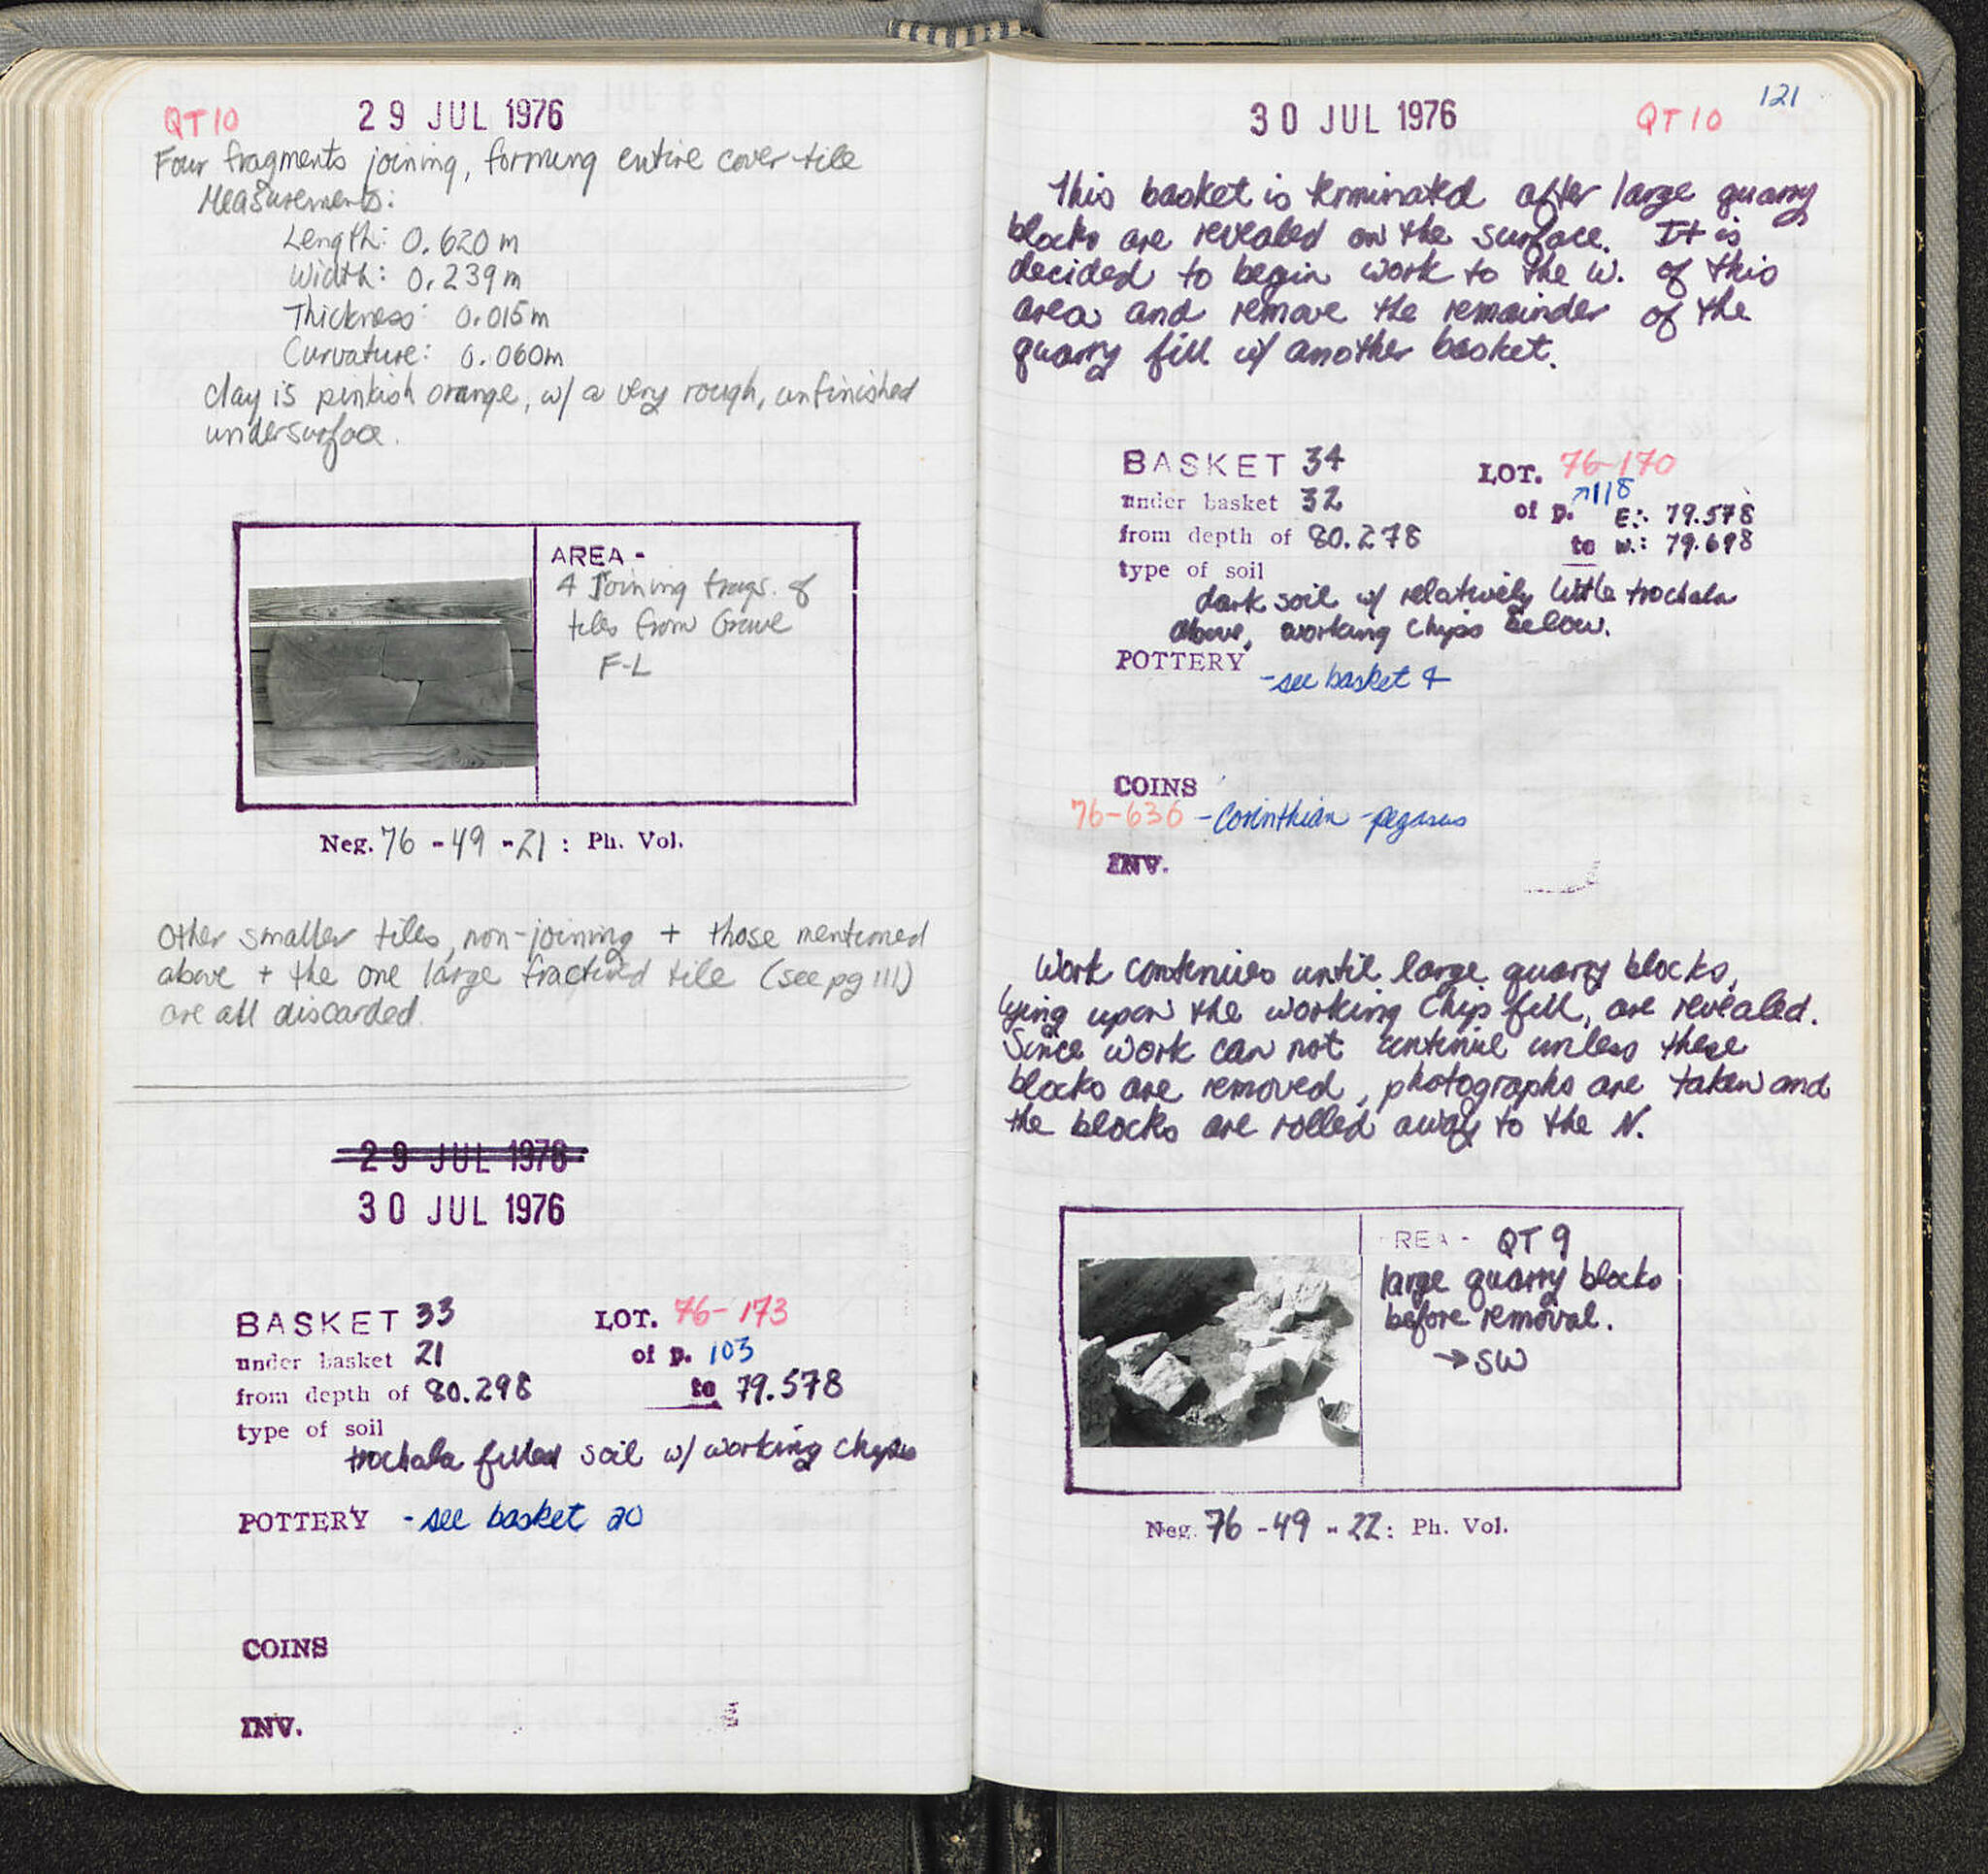 QT10 29 JUL 1976
Four fragments joining, forming entire cover tile
Measurements:
Length: 0.620 m
Width: 0.239 m
Thickness: 0.015 m
Curvature: 0.060m
Clay is pinkish orange, w/ a very rough, unfinished
undersurface.
AREA -
4 Joining frags. of
tiles from Grave
F-L
Neg. 76 - 49 - 21 : Ph. Vol.
Other smaller tiles, non-joining + those mentioned
above + the one large fractured tile (see pg 111)
are all discarded.
29 JUL 1976
30 JUL 1976
BASKET 33 LOT. 76-173
under basket 21 of p. 103
from depth of 80.298 to 79.578
type of soil
trochala filled soil w/ working chips
POTTERY - see basket 20
COINS
INV.
121
30 JUL 1976 QT10
This basket is terminated after large quarry
blocks are revealed on the surface. It is
decided to begin work to the W. of this
area and remove the remainder of the
quarry fill w/ another basket.
BASKET 34 LOT. 76-170
under basket 32 of p. ↗118 E.: 79.578
from depth of 80.278 to W.: 79.698
type of soil
dark soil w/ relatively little trochala
above, working chips below.
POTTERY
- see basket 4
COINS
76-636 - Corinthian - pegasus
INV.
Work continues until large quarry blocks,
lying upon the working chip fill, are revealed.
Since work can not continue unless these
blocks are removed, photographs are taken and
the blocks are rolled away to the N.
AREA - QT 9
large quarry blocks
before removal.
→ SW
Neg. 76 - 49 - 22 : Ph. Vol.